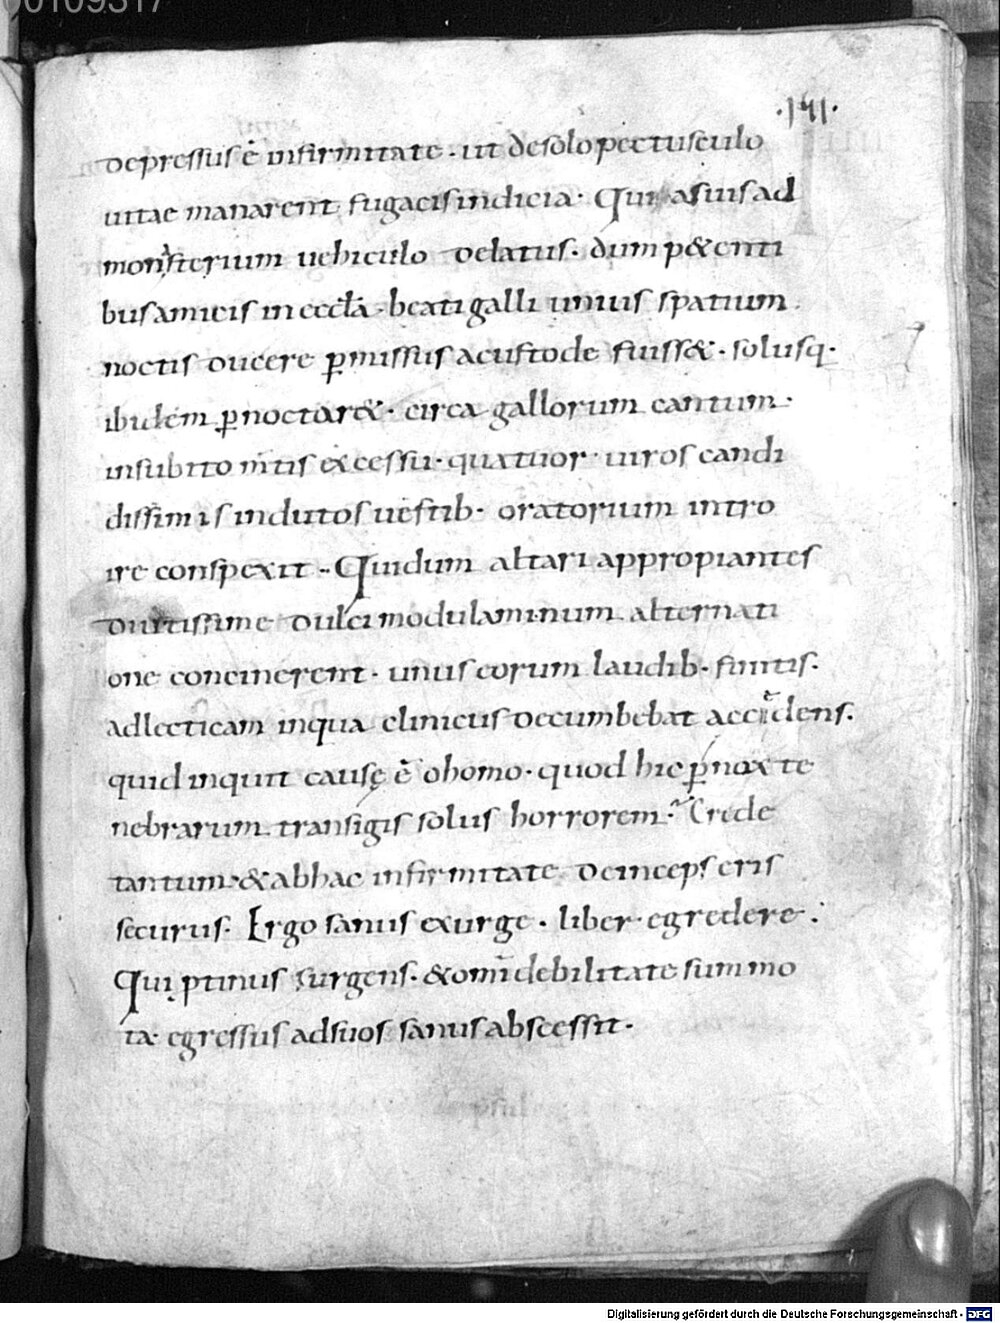 00109317
·141·
depressus ē infirmitate · ut desolo pectusculo
uitae manarent fugacis indicia · Qui asuis ad
monsterium uehiculo delatus · dum p&enti
bus amicis in eccła beati galli unius spatium
noctis ducere p̲missus acustode fuiss& · solusq·
ibidem p̲noctar& · circa gallorum cantum ·
insubito m̄tis excessu · quattuor uiros candi
dissimis indutos uestib · oratorium intro
ire conspexit · Qui dum altari appropiantes
diutissime dulci modulaminum alternati
one concinerent · unus eorum laudib · finitis ·
adlecticam inqua clinicus decumbebat accedens ·
quid inquit causę ē ohomo · quod hic p̲nox te
nebrarum transigis solus horrorem · Crede
tantum · & abhac infirmitate deinceps eris
securus · Ergo sanus exurge · liber egredere ·
Qui ptinus surgens · & om̄i debilitate summo
ta egressus adsuos sanus abscessit ·
Digitalisierung gefördert durch die Deutsche Forschungsgemeinschaft - DFG